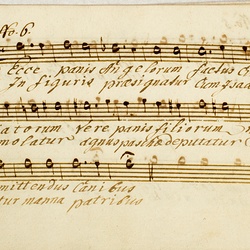 No. 6.
Ecce panis Angelorum factus C
In figuris præsignatur Cum Isaac
atorum vere panis filiorum
molatur agnus paschæ deputatur
mittendus canibus
tur manna patribus